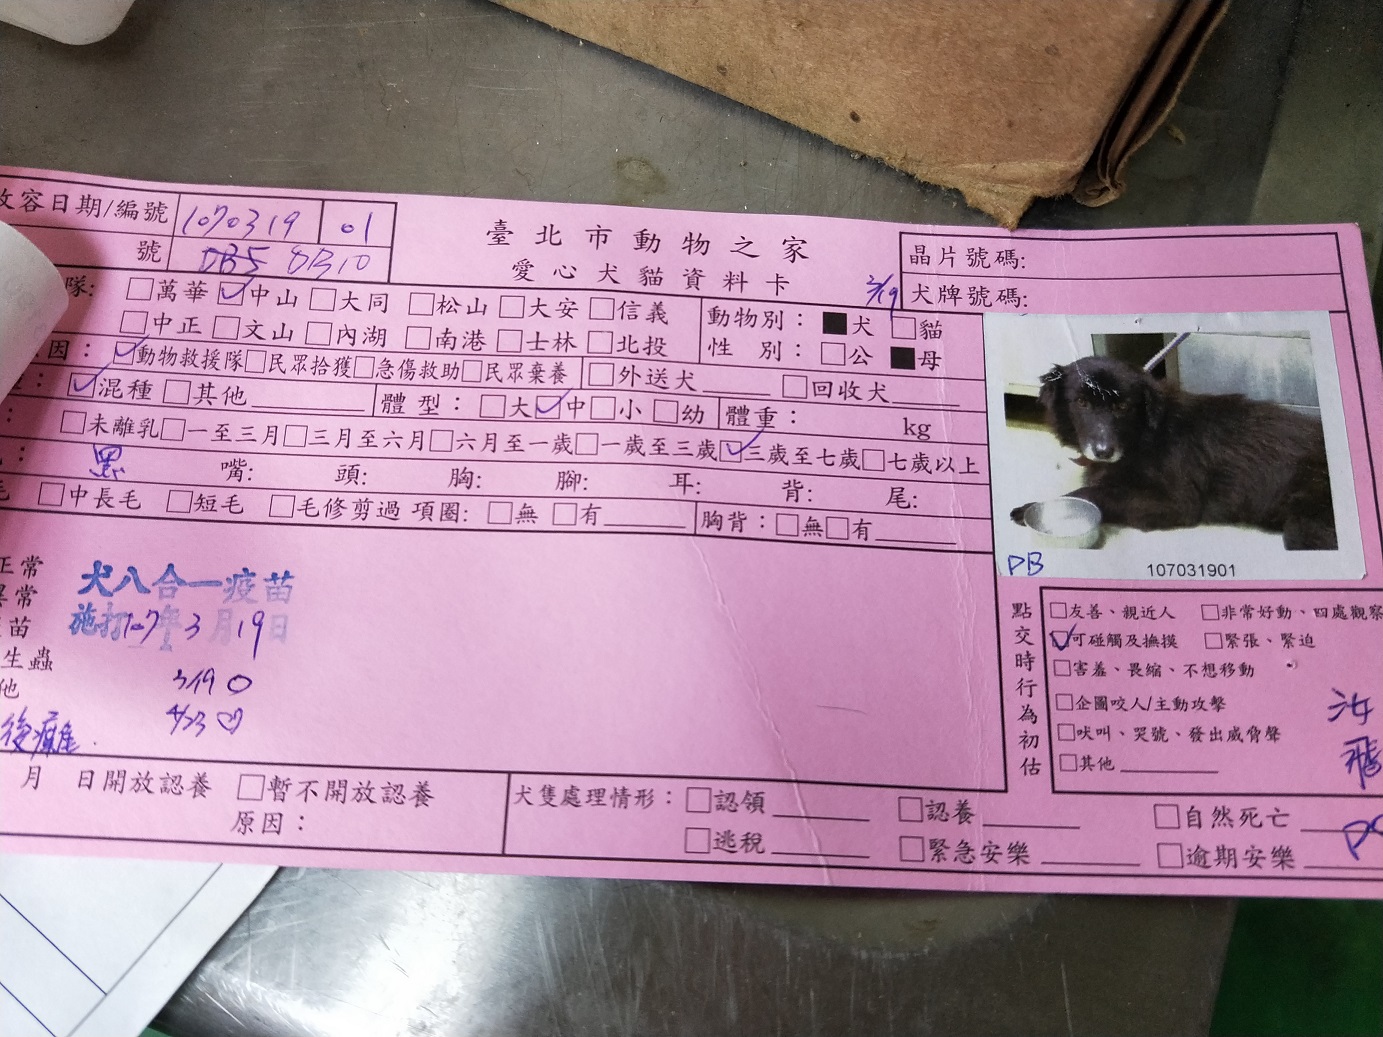 收容日期/編號 1070319 01
號 DB5 DB10
臺北市動物之家
愛心犬貓資料卡
3/19
晶片號碼:
犬牌號碼:
隊: □萬華 ☑中山 □大同 □松山 □大安 □信義
□中正 □文山 □內湖 □南港 □士林 □北投
動物別: ■犬 □貓
性別: □公 ■母
因: ☑動物救援隊 □民眾拾獲 □急傷救助 □民眾棄養 □外送犬 □回收犬
☑混種 □其他 體型: □大 ☑中 □小 □幼 體重: kg
: □未離乳 □一至三月 □三月至六月 □六月至一歲 □一歲至三歲 ☑三歲至七歲 □七歲以上
: 黑 嘴: 頭: 胸: 腳: 耳: 背: 尾:
毛 □中長毛 □短毛 □毛修剪過 項圈: □無 □有 胸背: □無 □有
DB
107031901
正常
異常
苗
生蟲
他
犬八合一疫苗
施打107年3月19日
3/19 O
4/23
後癱
點交時行為初估
□友善、親近人 □非常好動、四處觀察
☑可碰觸及撫摸 □緊張、緊迫
□害羞、畏縮、不想移動
□企圖咬人/主動攻擊
□吠叫、哭號、發出威脅聲
□其他
月 日開放認養 □暫不開放認養
原因:
犬隻處理情形: □認領 □認養 □自然死亡
□逃稅 □緊急安樂 □逾期安樂